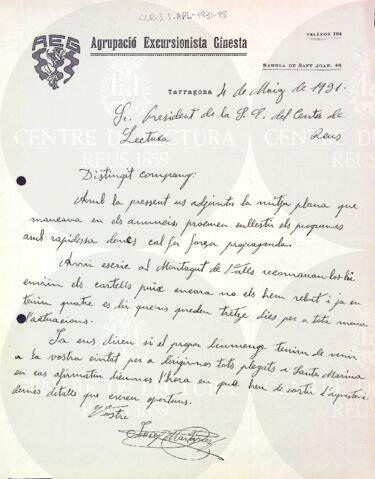 CLR-S S.APL-1931-15
AEG
Agrupació Excursionista Ginesta
TELÈFON 164
RAMBLA DE SANT JOAN, 46
Tarragona 4 de Maig de 1931.
Sr. President de la S. E. del Centre de
Lectura Reus
Distingit company:
Amb la present us adjunto la mitja plana que
mancava en els anuncis, procureu enllestir els programes
amb rapidesa doncs cal fer força propaganda.
Avui escric al Montagut de Valls recomanan-los-hi
enviïn els cartells puix encara no els hem rebut i ja en
tenim quatre es dir que'ns queden tretze dies per a tota mena
d'actuacions.
Ja ens direu si el proper diumenge tenim de venir
a la vostra ciutat per a dirigirnos tots plegats a Santa Marina
en cas afirmatiu dieu-nos l'hora en que hem de sortir d'aquesta i
demés detalls que creieu oportuns.
Vostre
Josep Martínez
CENTRE DE LECTURA
REUS 1859